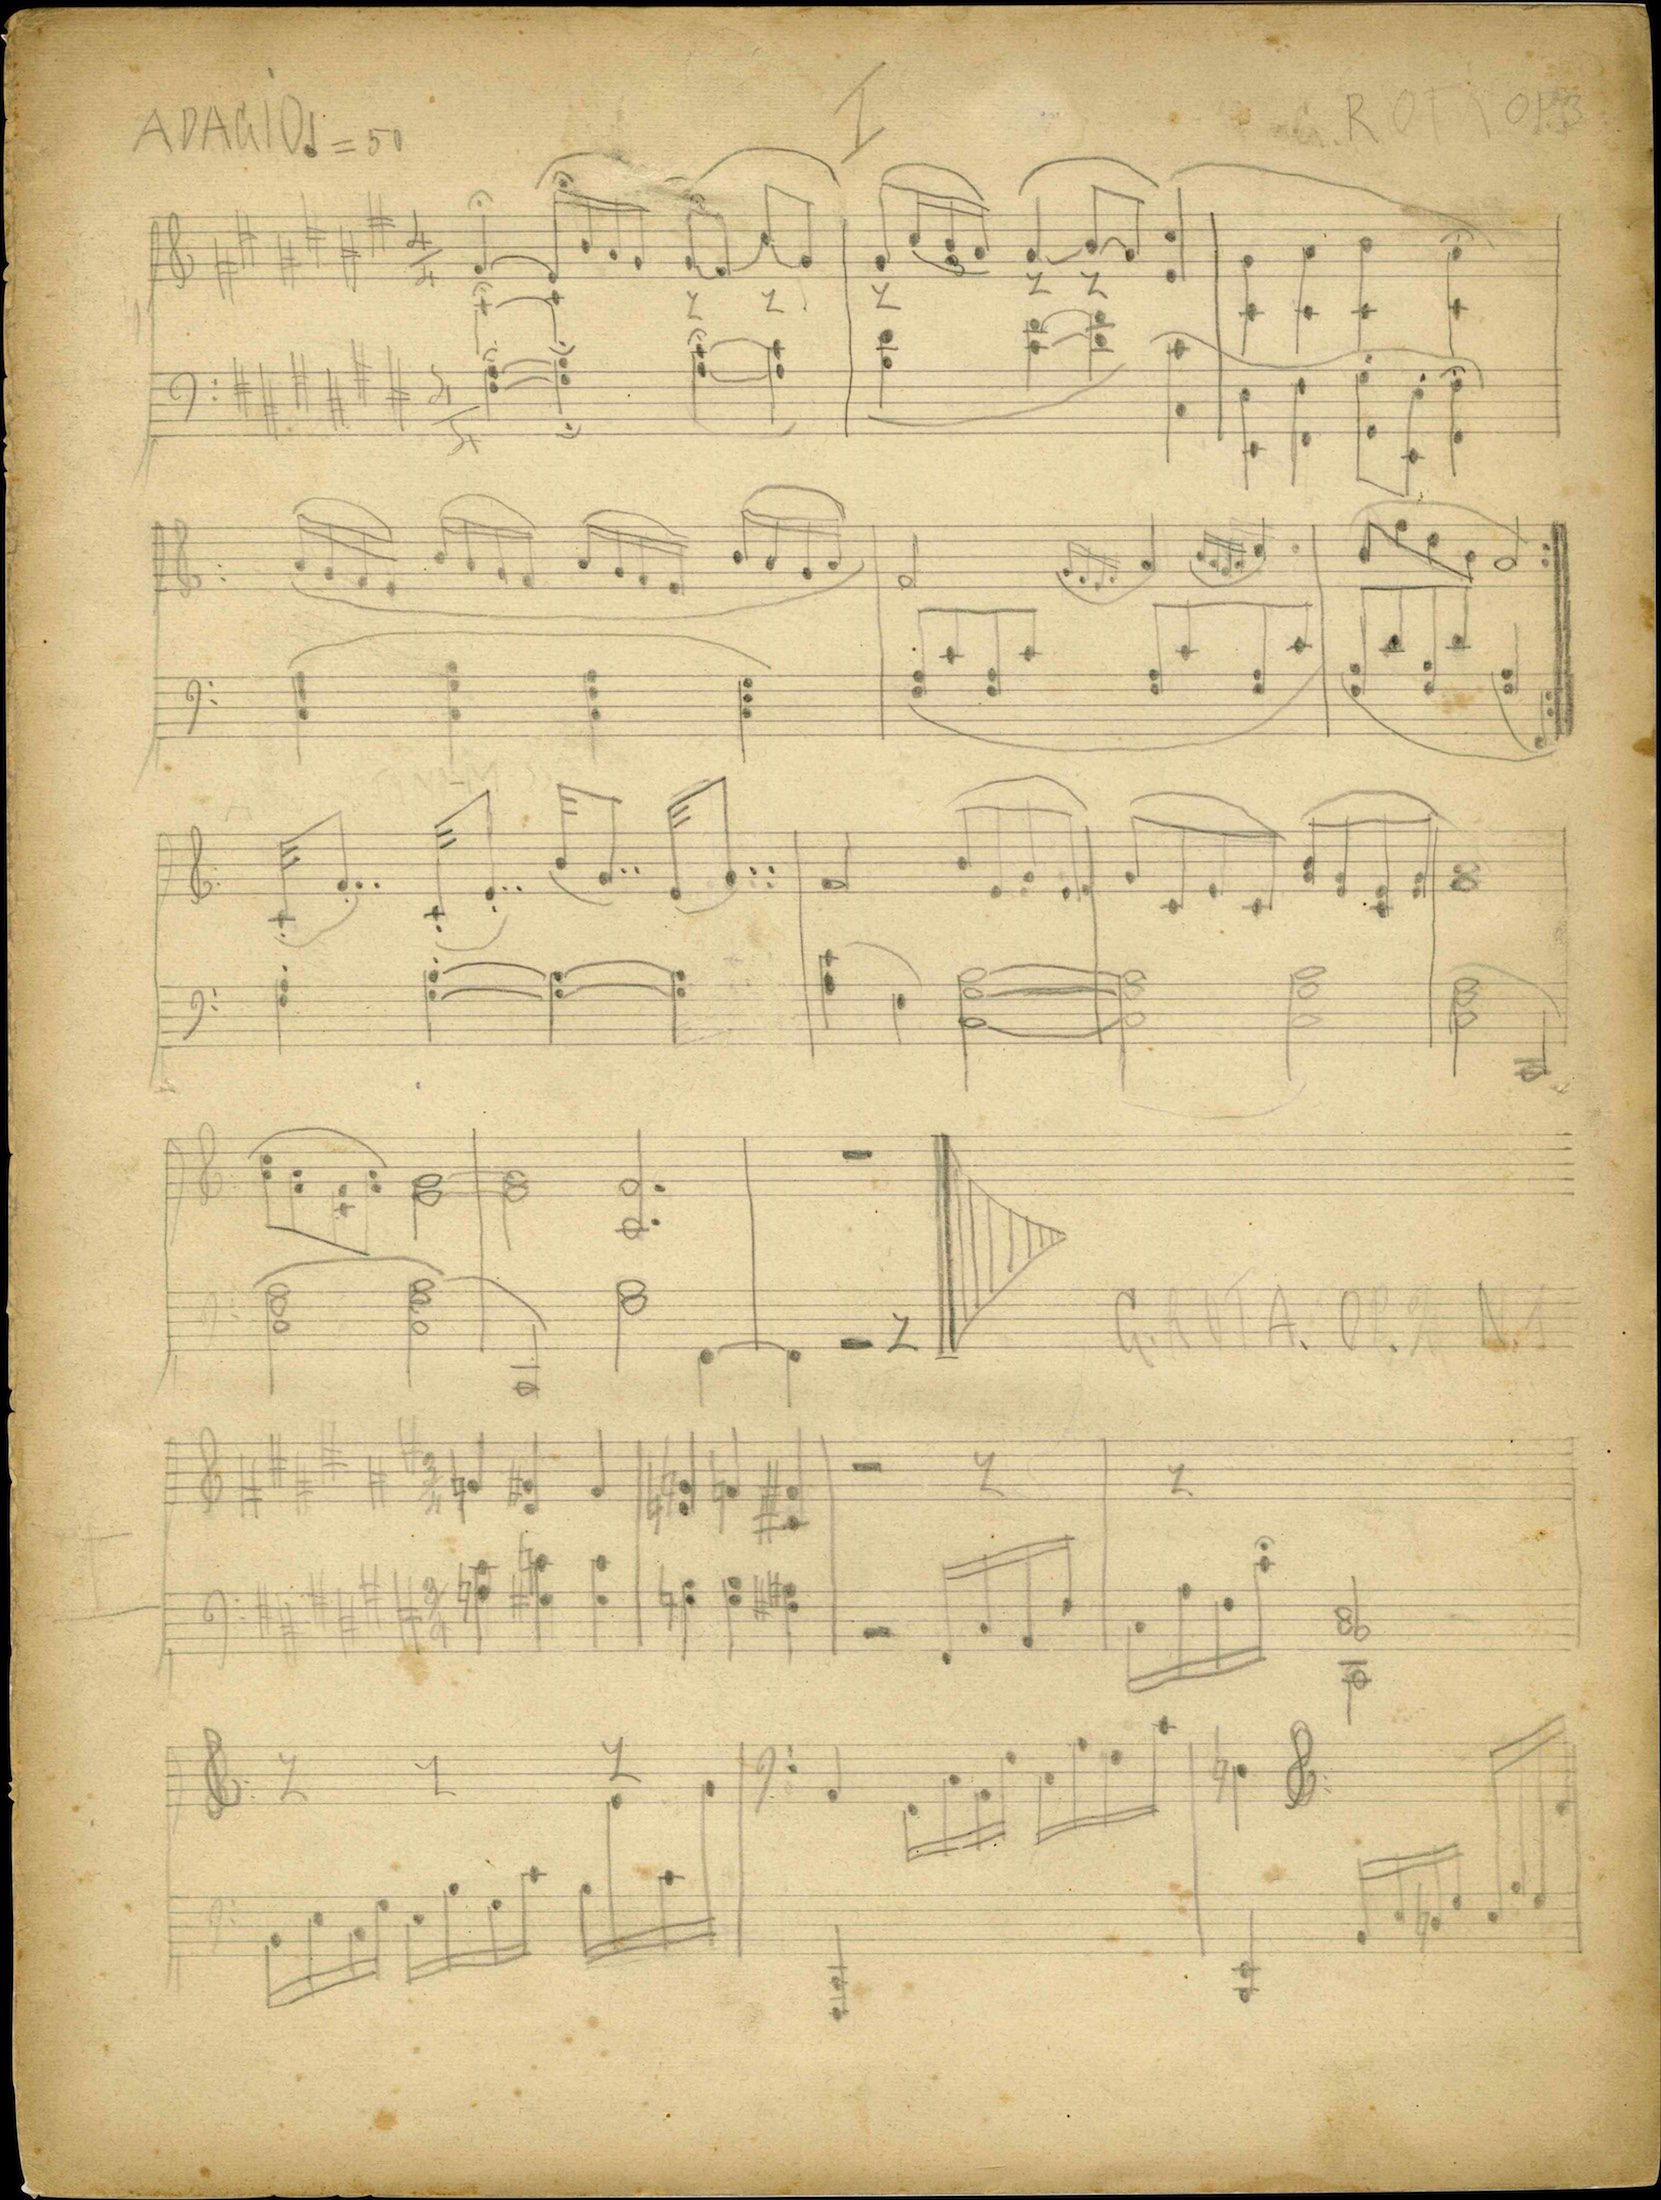 ADAGIO ♩ = 50
I
G. ROTA OP.3
4/4
G. ROTA. OP. N. 1
II